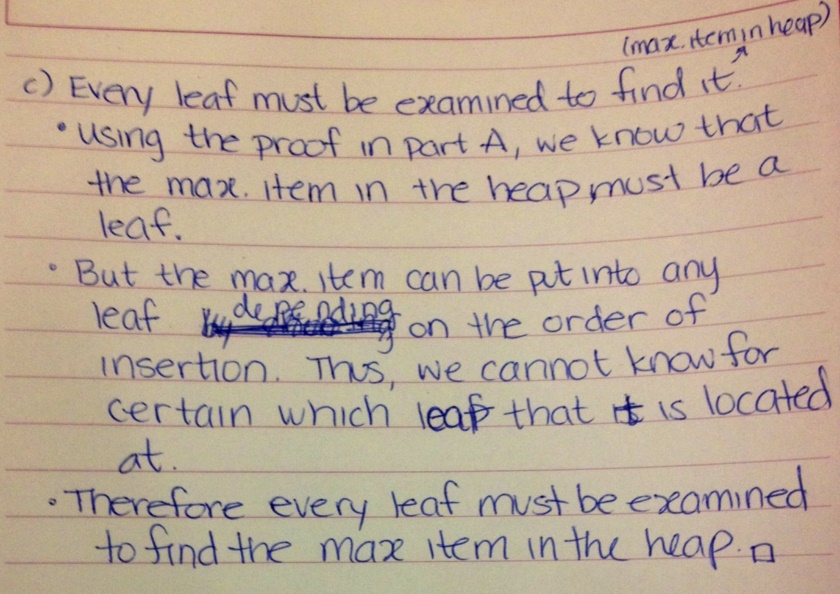 (max. item in heap)
c) Every leaf must be examined to find it.
• Using the proof in part A, we know that
the max. item in the heap must be a
leaf.
• But the max. item can be put into any
leaf depending on the order of
insertion. Thus, we cannot know for
certain which leaf that it is located
at.
• Therefore every leaf must be examined
to find the max item in the heap. □